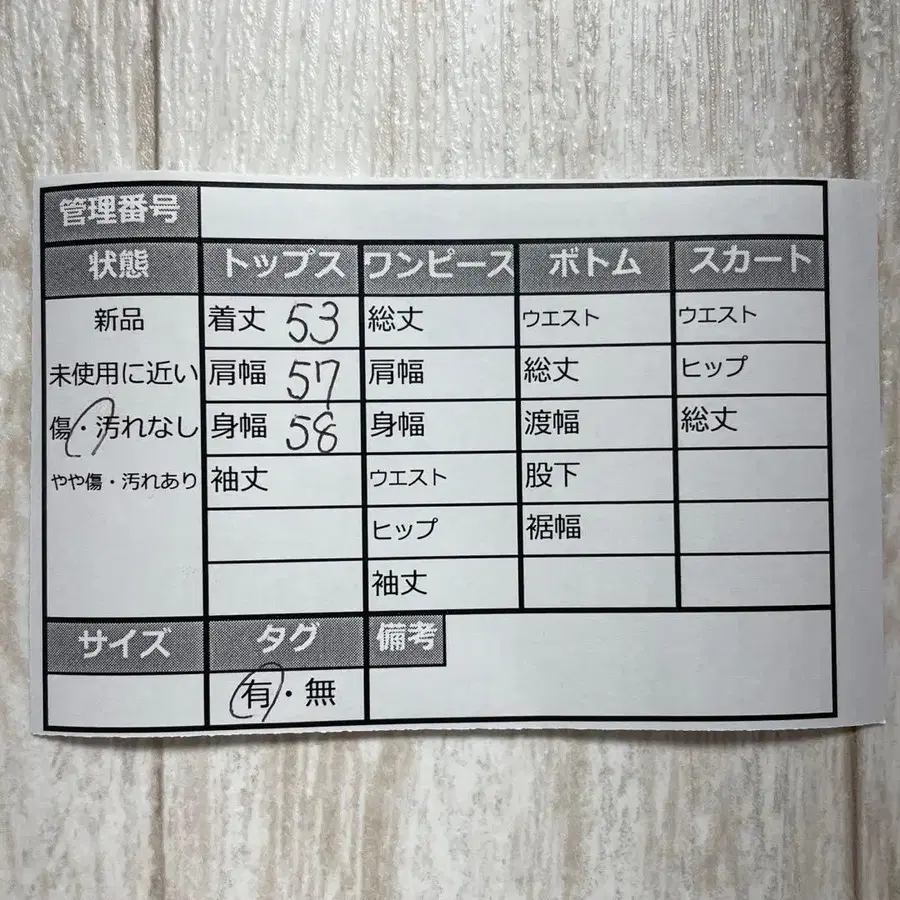 管理番号
状態 トップス ワンピース ボトム スカート
新品 着丈 53 総丈 ウエスト ウエスト
未使用に近い 肩幅 57 肩幅 総丈 ヒップ
傷・汚れなし 身幅 58 身幅 渡幅 総丈
やや傷・汚れあり 袖丈 ウエスト 股下
ヒップ 裾幅
袖丈
サイズ タグ 備考
有・無